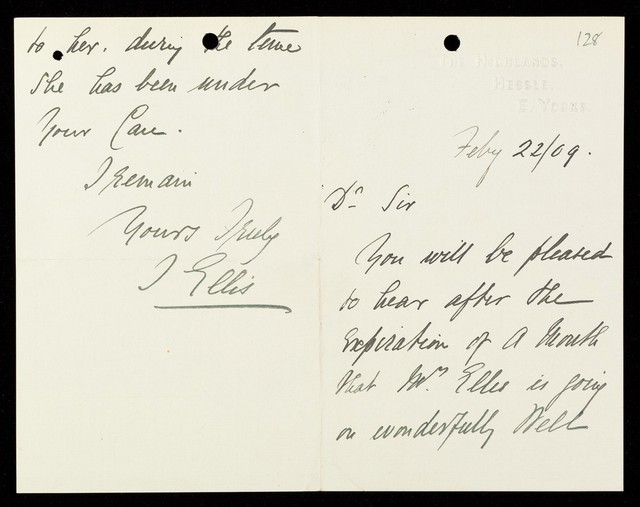 128
THE HIGHLANDS,
HESSLE,
E. YORKS.
Feby 22/09.
Dr Sir
You will be pleased
to hear after the
Expiration of A Month
that Mrs. Ellis is going
on wonderfully Well
to her. during the time
She has been under
Your Care.
I remain
Yours Truly
J Ellis